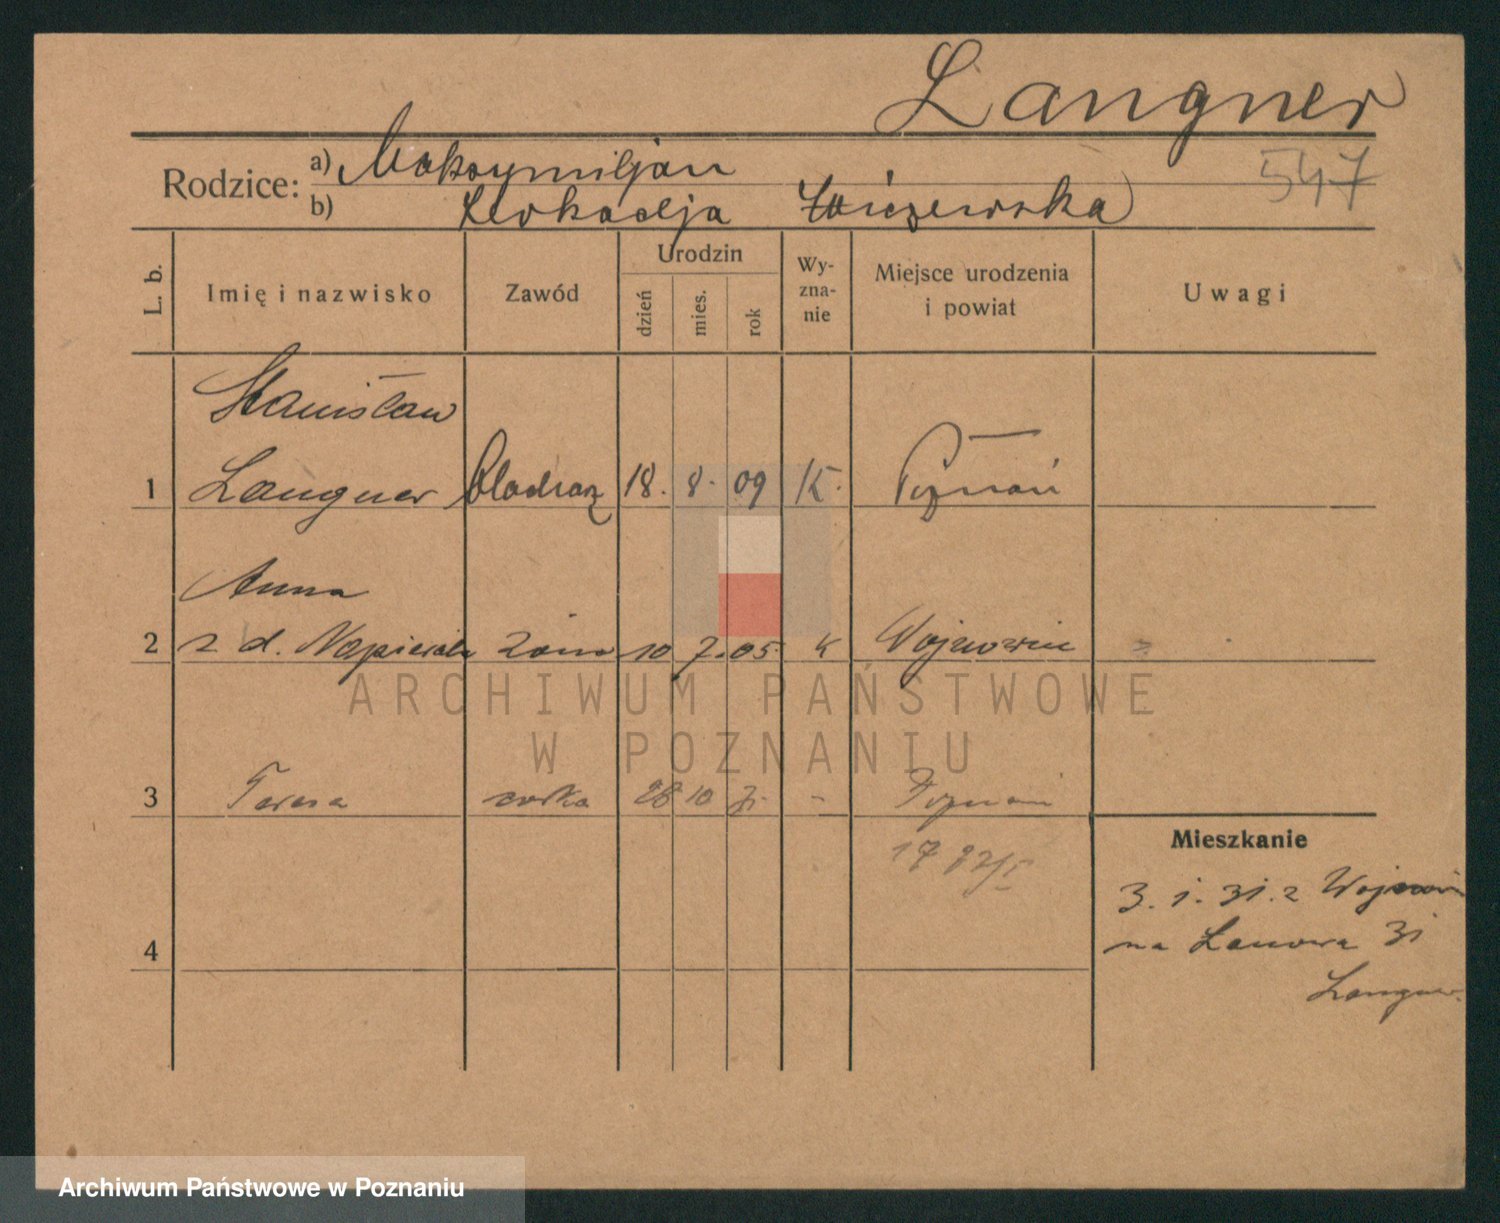 Langner
547
Rodzice: a) Maksymiljan
b) Leokadja
L. b.
Imię i nazwisko
Zawód
Urodzin
dzień
mies.
rok
Wy-
zna-
nie
Miejsce urodzenia
i powiat
Uwagi
Stanisław
1 Langner 18. 8. 09 K. Poznań
Anna
2 z d. Napierała żona 10 7. 05. k
3 Teresa córka 28 10 31 - Poznań
Mieszkanie
3. 1. 31. z
na 31
4
Langner
ARCHIWUM PAŃSTWOWE
W POZNANIU
Archiwum Państwowe w Poznaniu